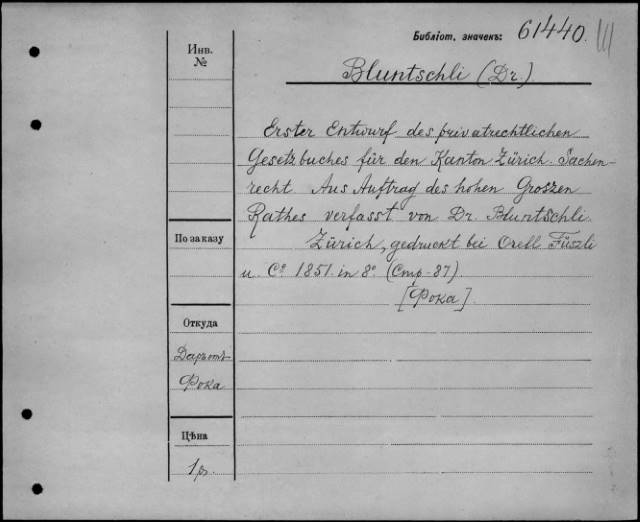 Библіот. значекъ: 61440. III
Инв.
№
Bluntschli (Dr.)
Erster Entwurf des privatrechtlichen
Gesetzbuches für den Kanton Zürich. Sachen-
recht. Aus Auftrag des hohen Groszen
Rathes verfasst von Dr. Bluntschli.
Zürich, gedruckt bei Orell Füszli
u. Co. 1851. in 8o. (Стр. 87)
[Фока]
По заказу
Откуда
Даръ отъ
Фока
Цѣна
1 р.